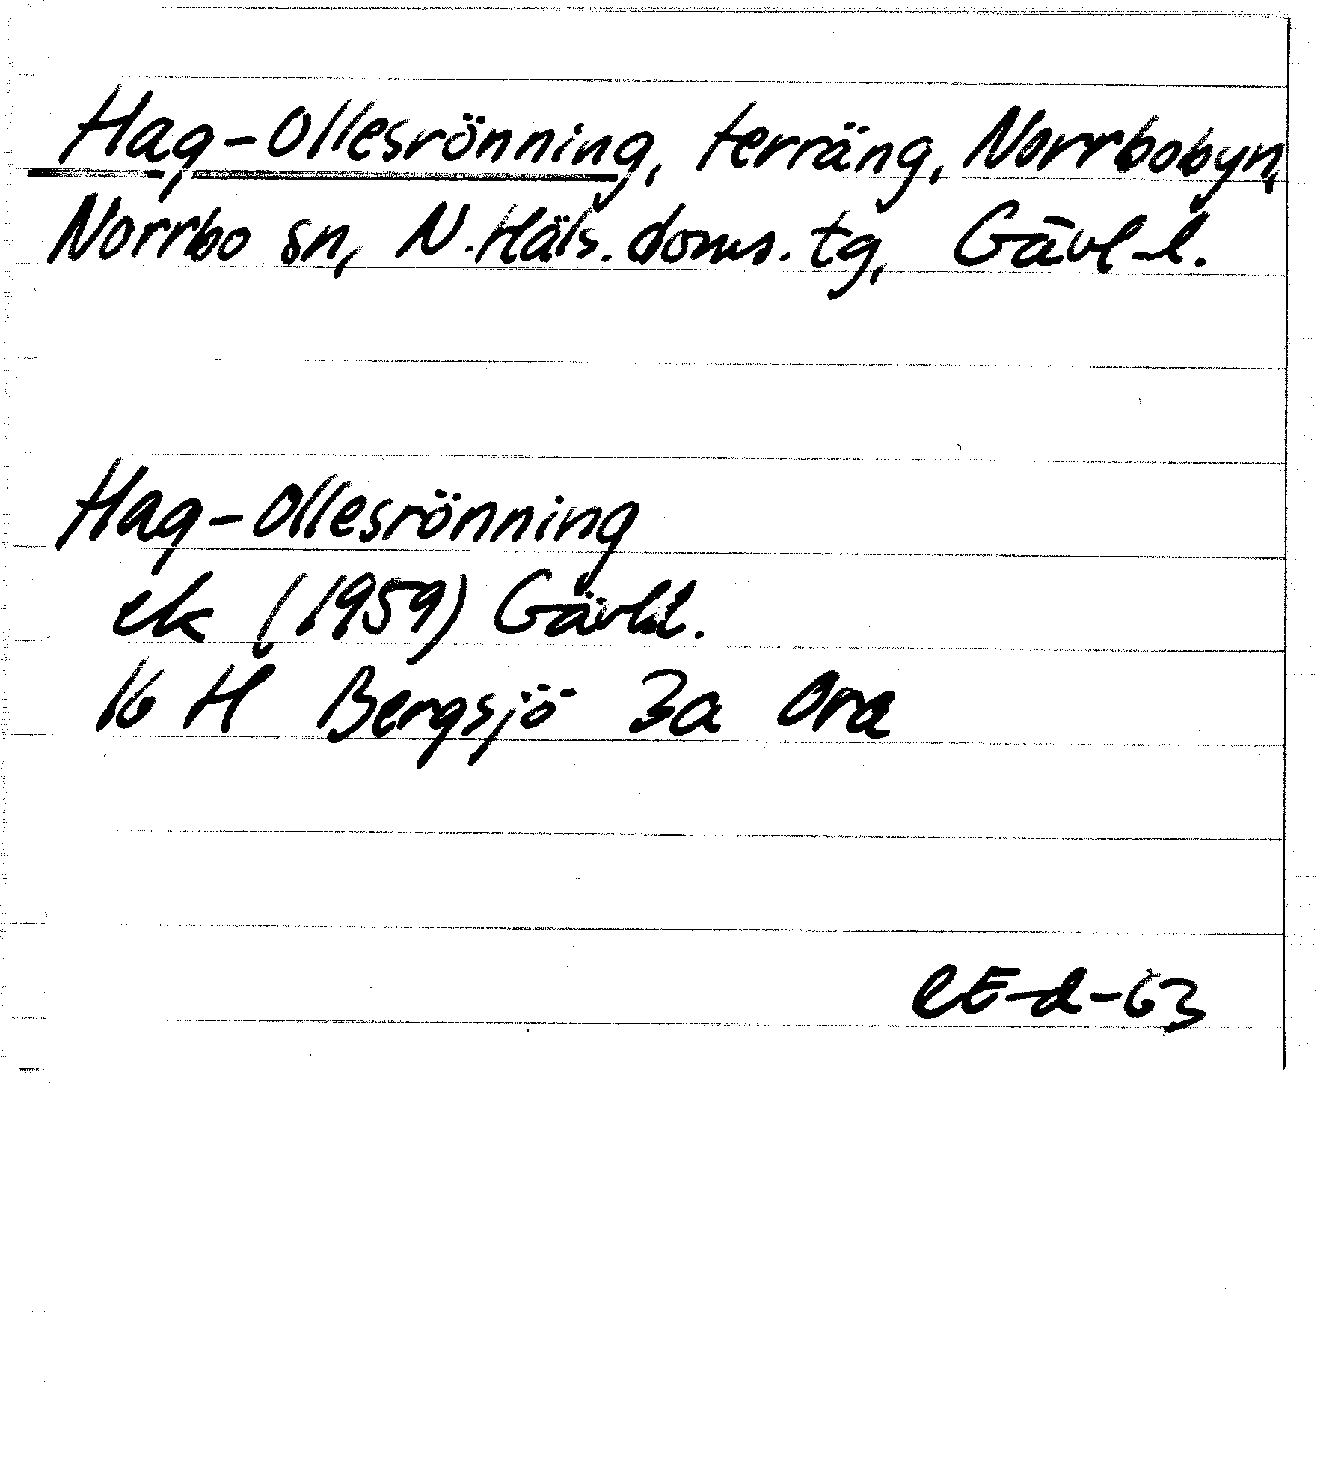 Hag-Ollesrönning, terräng, Norrbobyn,
Norrbo sn, N. Häls. doms. tg, Gävl-l.
Hag-Ollesrönning
ek (1959) Gävl.l.
16 H Bergsjö 3a Ora
63